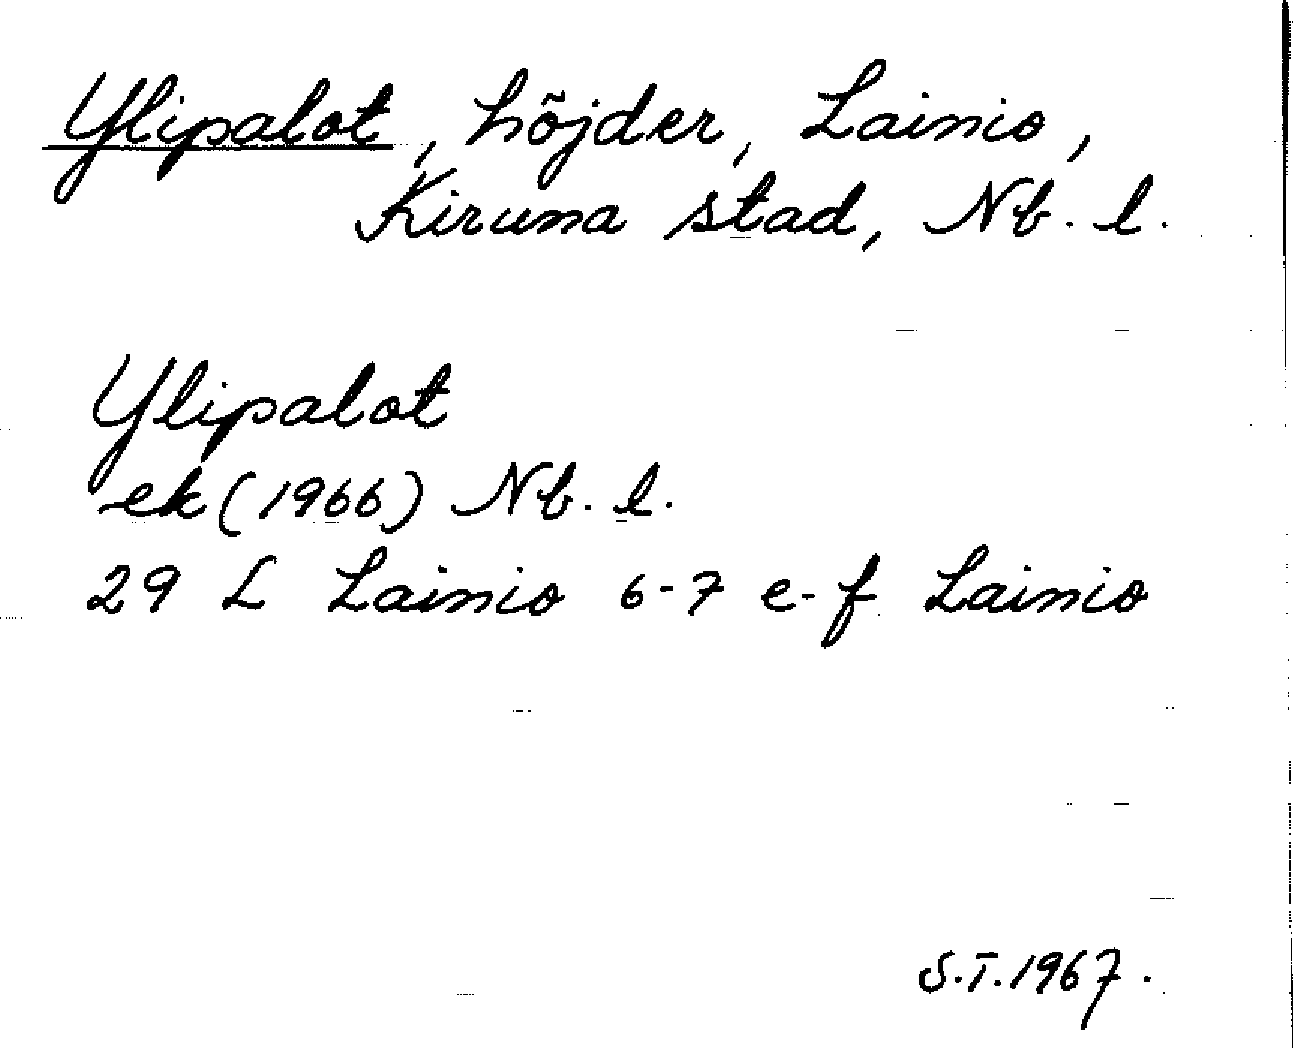 Ylipalot, höjder, Lainio,
Kiruna stad, Nb. l.
Ylipalot
ek (1966) Nb. l.
29 L Lainio 6-7 e-f Lainio
S.T. 1967.